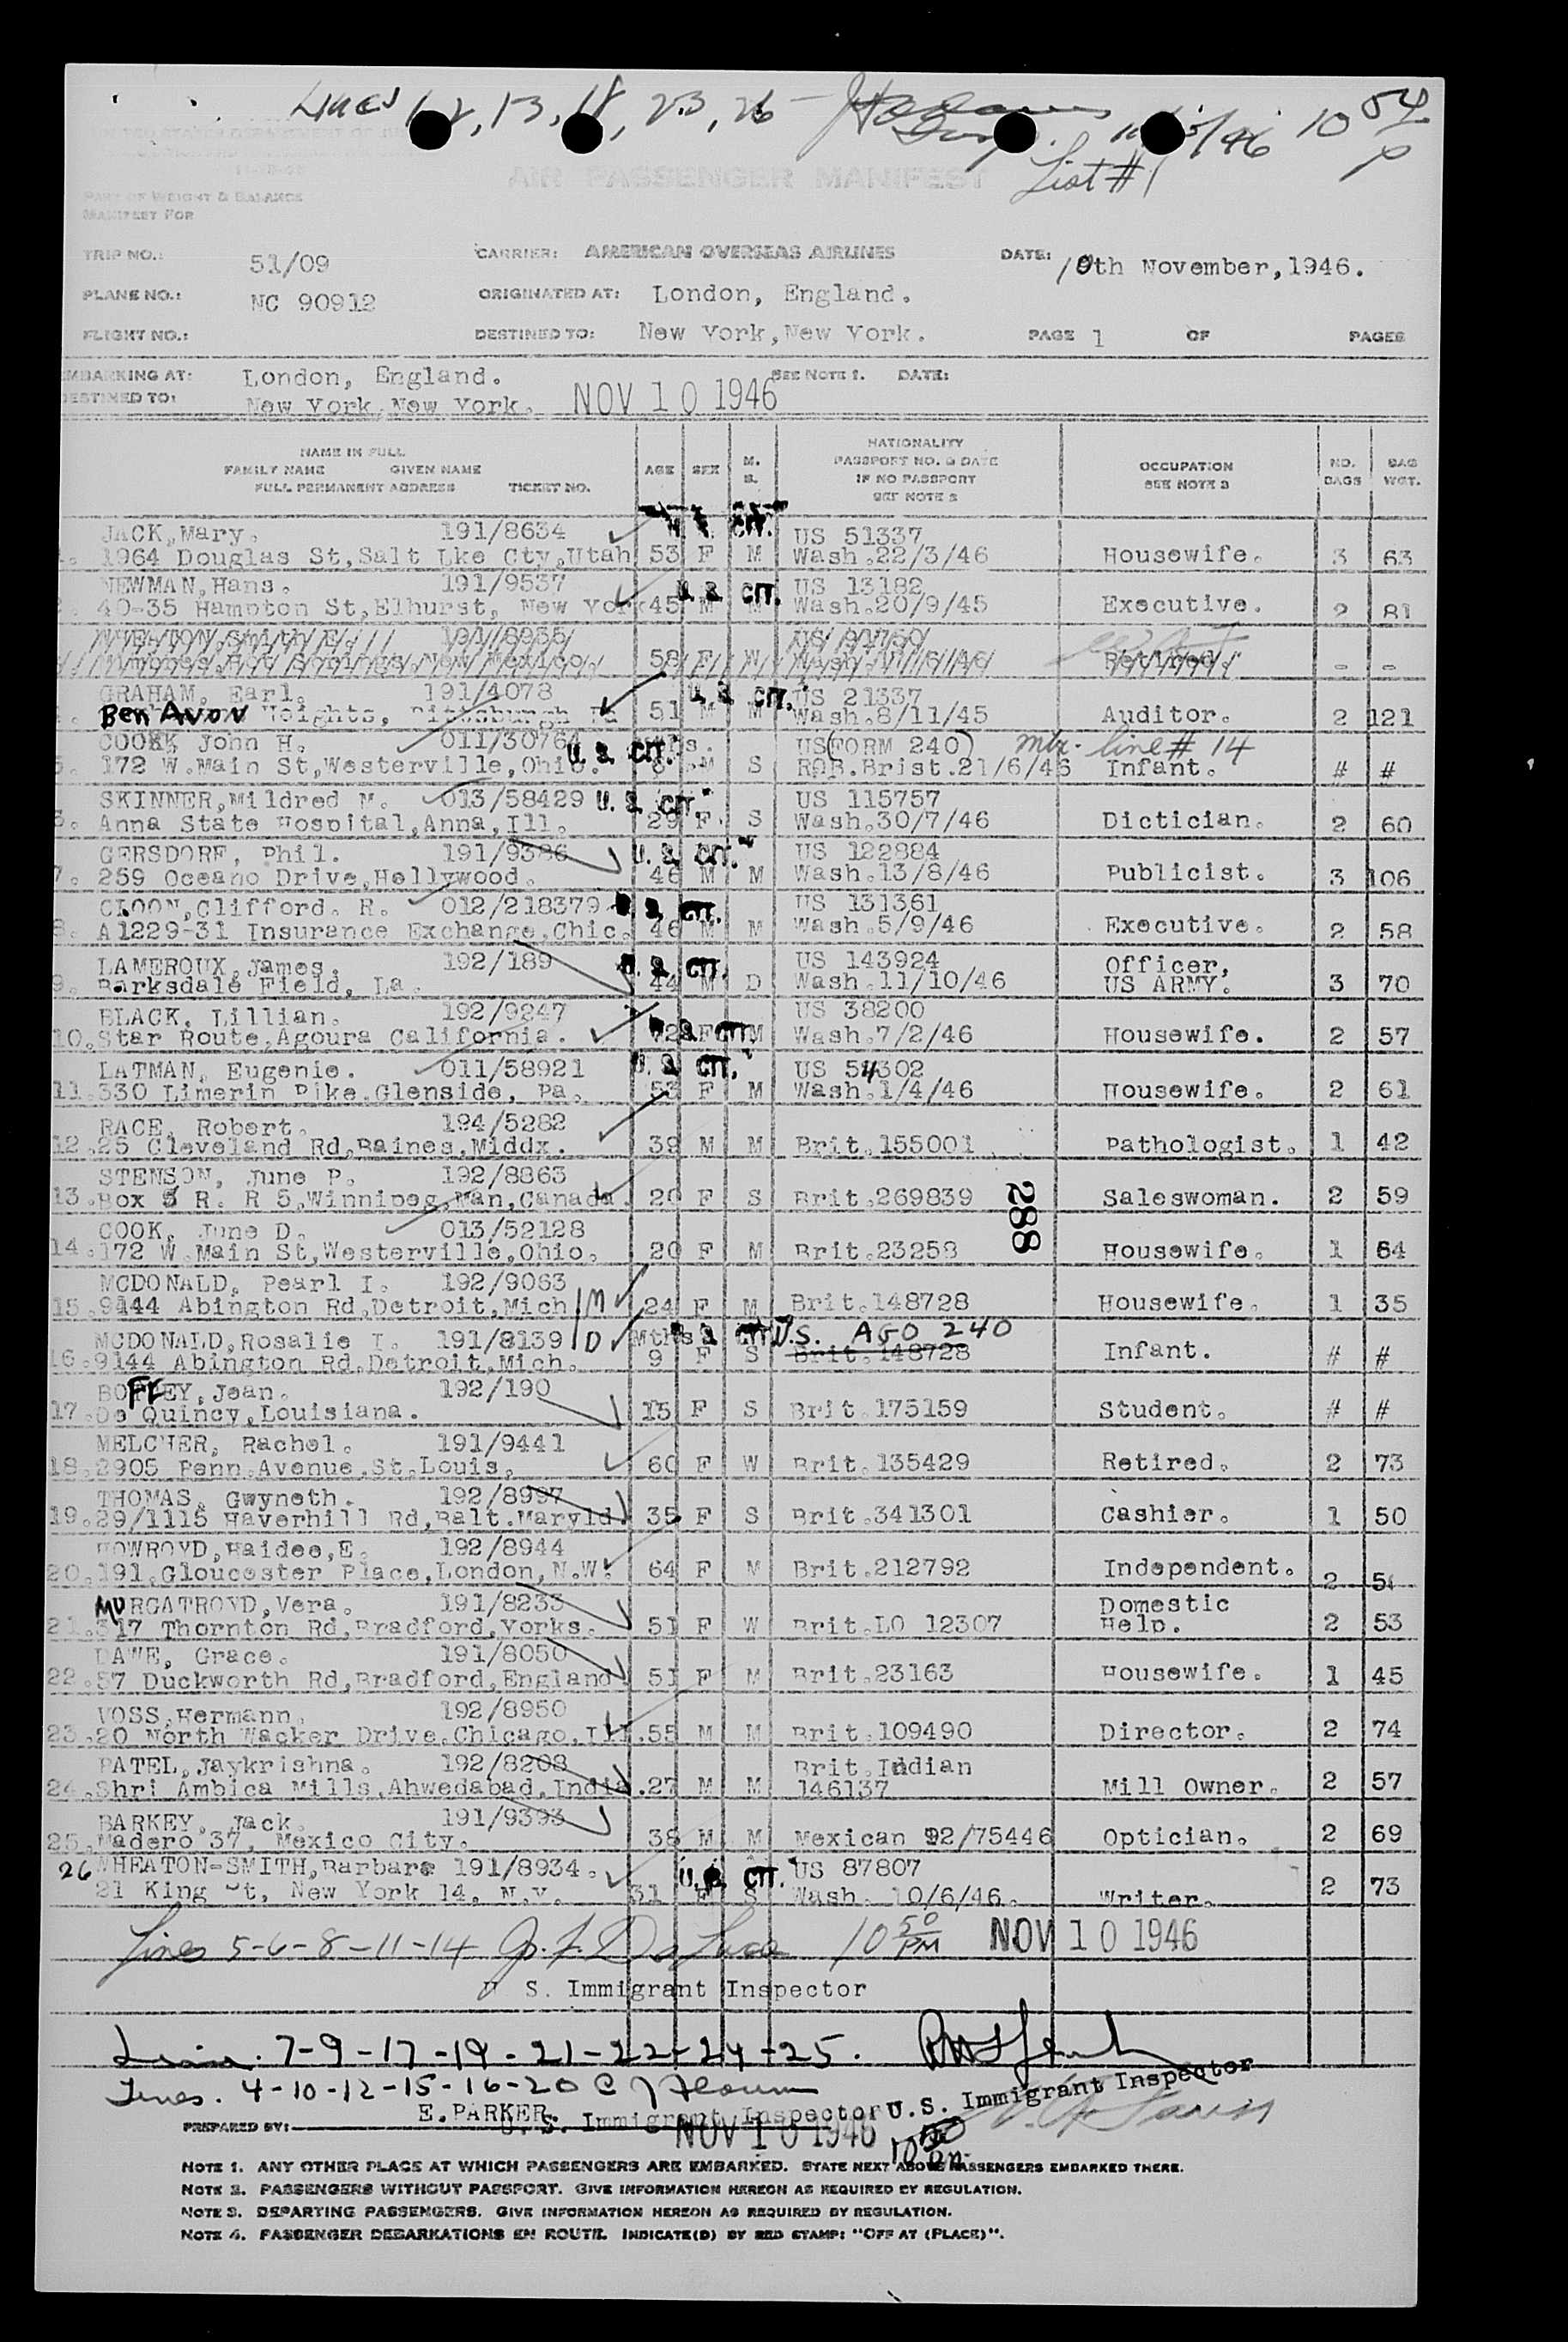 Lines 1-2, 13, 18, 23, 26 -
10 54 P
List #1
UNITED STATES DEPARTMENT OF
AIR PASSENGER MANIFEST
PART OF WEIGHT & BALANCE
MANIFEST FOR
TRIP NO.: 51/09 CARRIER: AMERICAN OVERSEAS AIRLINES DATE: 10th November,1946.
PLANE NO.: NC 90912 ORIGINATED AT: London, England.
FLIGHT NO.: DESTINED TO: New York,New York. PAGE 1 OF PAGES
EMBARKING AT: London, England. SEE NOTE 1. DATE:
DESTINED TO: New York,New York. NOV 10 1946
NAME IN FULL
FAMILY NAME GIVEN NAME
FULL PERMANENT ADDRESS TICKET NO.
AGE SEX M. S.
NATIONALITY
PASSPORT NO. & DATE
IF NO PASSPORT
SET NOTE 2
OCCUPATION
SEE NOTE 3
NO. BAGS
BAG WGT.
JACK,Mary. 191/8634 CIT. US 51337
1. 1964 Douglas St,Salt Lke Cty,Utah 53 F M Wash.22/3/46 Housewife. 3 63
NEWMAN,Hans. 191/9537 U.S. CIT. US 13182
2. 40-35 Hampton St,Elhurst, New York 45 M M Wash.20/9/45 Executive. 2 81
191/8935
58 F W Retired. - -
GRAHAM, Earl. 191/4078 U.S. CIT. US 21337
4. Ben Avon Heights, Pittsburgh Pa 51 M M Wash.8/11/45 Auditor. 2 121
COOK, John H. 011/30764 U.S. CIT. US(FORM 240) line # 14
5. 172 W.Main St,Westerville,Ohio. M S Brist.21/6/46 Infant. # #
SKINNER,Mildred M. 013/58429 U.S. CIT. US 115757
6. Anna State Hospital,Anna,Ill. 29 F. S Wash.30/7/46 Dictician. 2 60
GERSDORF, Phil. 191/9386 U.S. CIT. US 122884
7. 259 Oceano Drive,Hollywood. 46 M M Wash.13/8/46 Publicist. 3 106
CLOON,Clifford. R. 012/218379 U.S. CIT. US 131361
8. A1229-31 Insurance Exchange,Chic. 46 M M Wash.5/9/46 Executive. 2 58
LAMEROUX,James. 192/189 U.S. CIT. US 143924 Officer,
9. Barksdale Field, La. 44 M D Wash.11/10/46 US ARMY. 3 70
BLACK, Lillian. 192/9247 US 38200
10. Star Route,Agoura California. F CIT. M Wash.7/2/46 Housewife. 2 57
LATMAN, Eugenie. 011/58921 U.S. CIT. US 54302
11. 330 Limerin Pike.Glenside, Pa. 53 F M Wash.1/4/46 Housewife. 2 61
RACE, Robert. 194/5282
12. 25 Cleveland Rd,Baines,Middx. 39 M M Brit.155001 Pathologist. 1 42
STENSON, June P. 192/8863
13. Box 5 R. R 5,Winnipeg,Man,Canada. 20 F S Brit.269839 Saleswoman. 2 59
288
COOK, June D. 013/52128
14. 172 W.Main St,Westerville,Ohio. 20 F M Brit.23258 Housewife. 1 64
MCDONALD, Pearl I. 192/9063
15. 9144 Abington Rd,Detroit,Mich M 24 F M Brit.148728 Housewife. 1 35
MCDONALD,Rosalie I. 191/8139 D Mths CIT. U.S. AGO 240
16. 9144 Abington Rd,Detroit,Mich. 9 F S Brit.148728 Infant. # #
BOFFEY,Jean. 192/190
17. De Quincy,Louisiana. 15 F S Brit.175159 Student. # #
MELCHER, Rachel. 191/9441
18. 2905 Penn.Avenue,St.Louis. 60 F W Brit.135429 Retired. 2 73
THOMAS, Gwyneth. 192/8997
19. 29/1115 Haverhill Rd,Balt.Maryld. 35 F S Brit.341301 Cashier. 1 50
HOWROYD,Haidee,E. 192/8944
20. 191,Gloucester Place,London,N.W. 64 F M Brit.212792 Independent. 2
MURGATROYD,Vera. 191/8233 Domestic
21. 317 Thornton Rd,Bradford,Yorks. 51 F W Brit.LO 12307 Help. 2 53
DAWE, Grace. 191/8050
22. 57 Duckworth Rd,Bradford,England 51 F M Brit.23163 Housewife. 1 45
VOSS,Hermann. 192/8950
23. 20 North Wacker Drive,Chicago,Ill. 55 M M Brit.109490 Director. 2 74
PATEL,Jaykrishna. 192/8208 Brit.Indian
24. Shri Ambica Mills,Ahwedabad,India. 27 M M 146137 Mill Owner. 2 57
BARKEY, Jack. 191/9393
25. Madero 37, Mexico City. 38 M M Mexican 92/75446 Optician. 2 69
26 WHEATON-SMITH,Barbara 191/8934. U.S. CIT. US 87807
21 King St, New York 14, N.Y. 31 F S Wash. 10/6/46. Writer. 2 73
Lines 5-6-8-11-14 10 50 PM NOV 10 1946
U S. Immigrant Inspector
Lines. 7-9-17-19-21-22-24-25.
Lines. 4-10-12-15-16-20
U.S. Immigrant Inspector
PREPARED BY: E.PARKER. U.S. Immigrant Inspector
NOV 10 1946
NOTE 1. ANY OTHER PLACE AT WHICH PASSENGERS ARE EMBARKED. STATE NEXT ABOVE PASSENGERS EMBARKED THERE.
NOTE 2. PASSENGERS WITHOUT PASSPORT. GIVE INFORMATION HEREON AS REQUIRED BY REGULATION.
NOTE 3. DEPARTING PASSENGERS. GIVE INFORMATION HEREON AS REQUIRED BY REGULATION.
NOTE 4. PASSENGER DEBARKATIONS EN ROUTE. INDICATE(D) BY RED STAMP: "OFF AT (PLACE)".